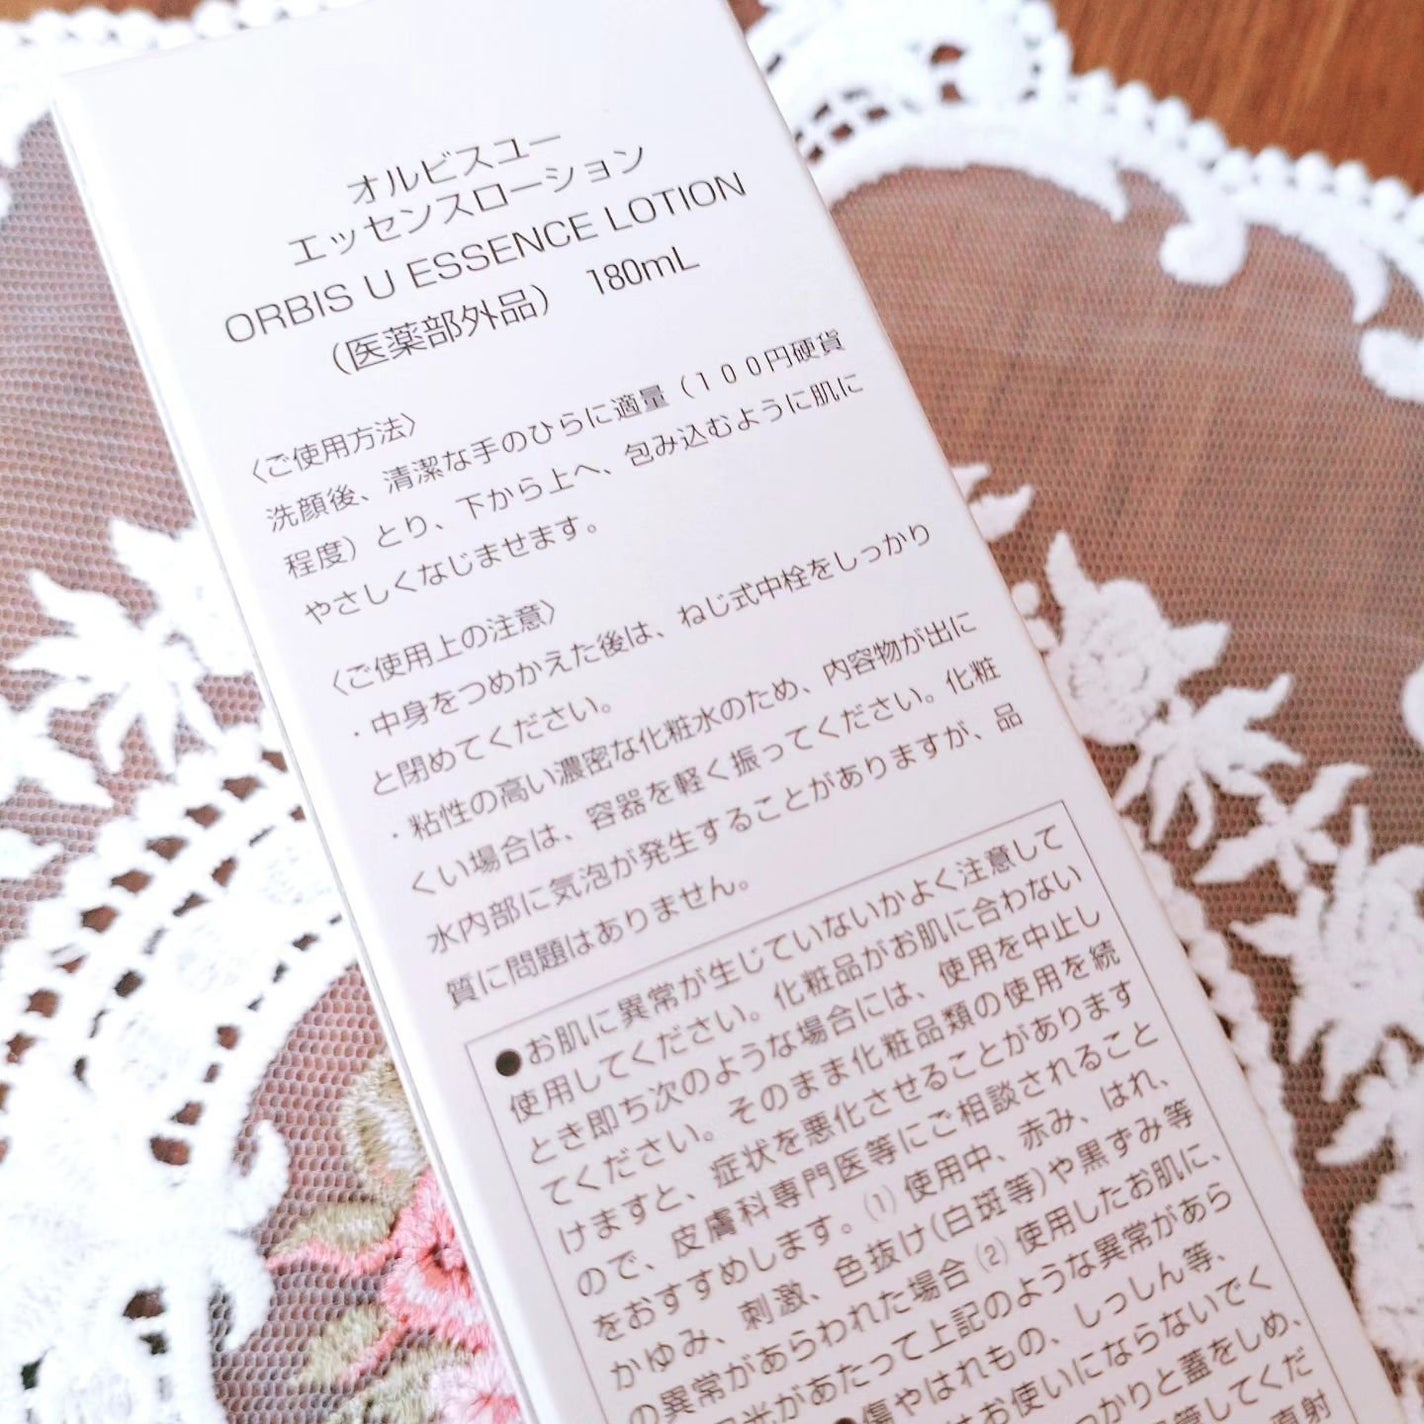 オルビスユー
エッセンスローション
ORBIS U ESSENCE LOTION
（医薬部外品） 180mL
〈ご使用方法〉
洗顔後、清潔な手のひらに適量（１００円硬貨
程度）とり、下から上へ、包み込むように肌に
やさしくなじませます。
〈ご使用上の注意〉
・中身をつめかえた後は、ねじ式中栓をしっかり
と閉めてください。
・粘性の高い濃密な化粧水のため、内容物が出に
くい場合は、容器を軽く振ってください。化粧
水内部に気泡が発生することがありますが、品
質に問題はありません。
●お肌に異常が生じていないかよく注意して
使用してください。化粧品がお肌に合わない
とき即ち次のような場合には、使用を中止し
てください。そのまま化粧品類の使用を続
けますと、症状を悪化させることがあります
ので、皮膚科専門医等にご相談されること
をおすすめします。(1)使用中、赤み、はれ、
かゆみ、刺激、色抜け(白斑等)や黒ずみ等
の異常があらわれた場合(2)使用したお肌に、
光があたって上記のような異常があら
●傷やはれもの、しっしん等、
はお使いにならないでく
っかりと蓋をしめ、
管してくだ
直射